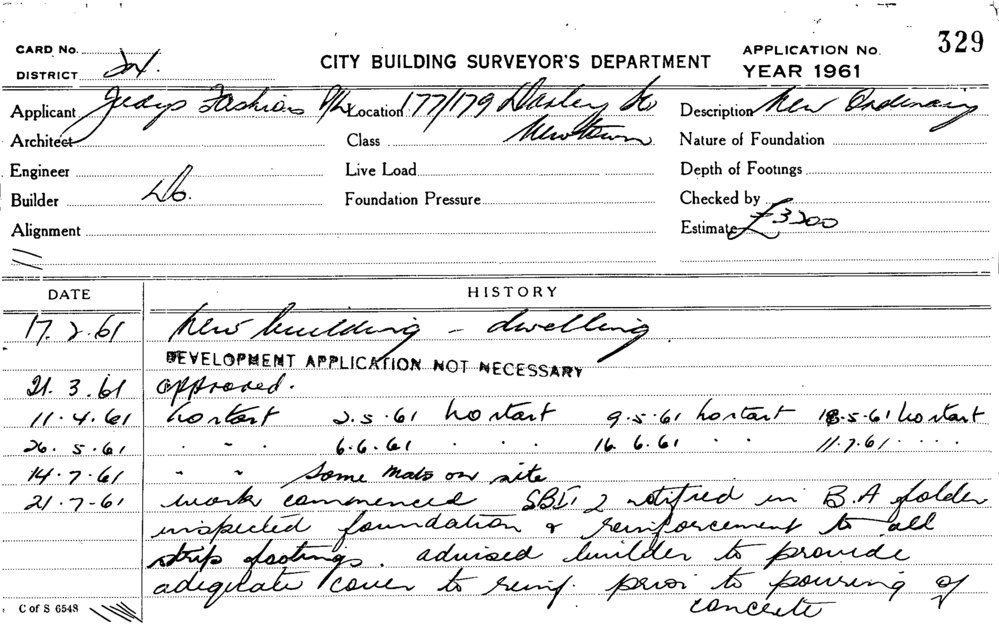 CARD No.
DISTRICT
CITY BUILDING SURVEYOR'S DEPARTMENT
APPLICATION No. 329
YEAR 1961
Applicant Jedys Fashions P/L Location 177/179 Description New Ordinary
Architect Class Newtown Nature of Foundation
Engineer Live Load Depth of Footings
Builder Do. Foundation Pressure Checked by
Alignment Estimate £3200
DATE HISTORY
17.2.61 New building - dwelling
DEVELOPMENT APPLICATION NOT NECESSARY
21.3.61 approved.
11.4.61 no start 2.5.61 no start 9.5.61 no start 18.5.61 no start
26.5.61 " " 6.6.61 . . . 16.6.61 . . 11.7.61 . . . .
14.7.61 " " Some mats on site
21.7.61 work commenced 2 notified in B.A folder
inspected foundation & reinforcement to all
strip footings. advised builder to provide
adequate cover to reinf. prior to pouring of
concrete
C of S 6548